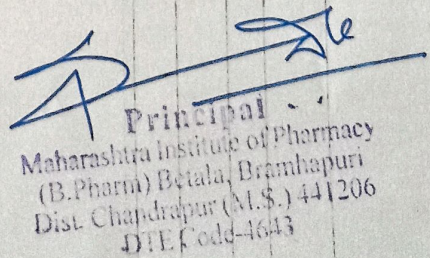 Principal
Maharashtra Institute of Pharmacy
(B.Pharm) Betala, Bramhapuri
Dist. Chandrapur (M.S.) 441206
DTE Code-4643